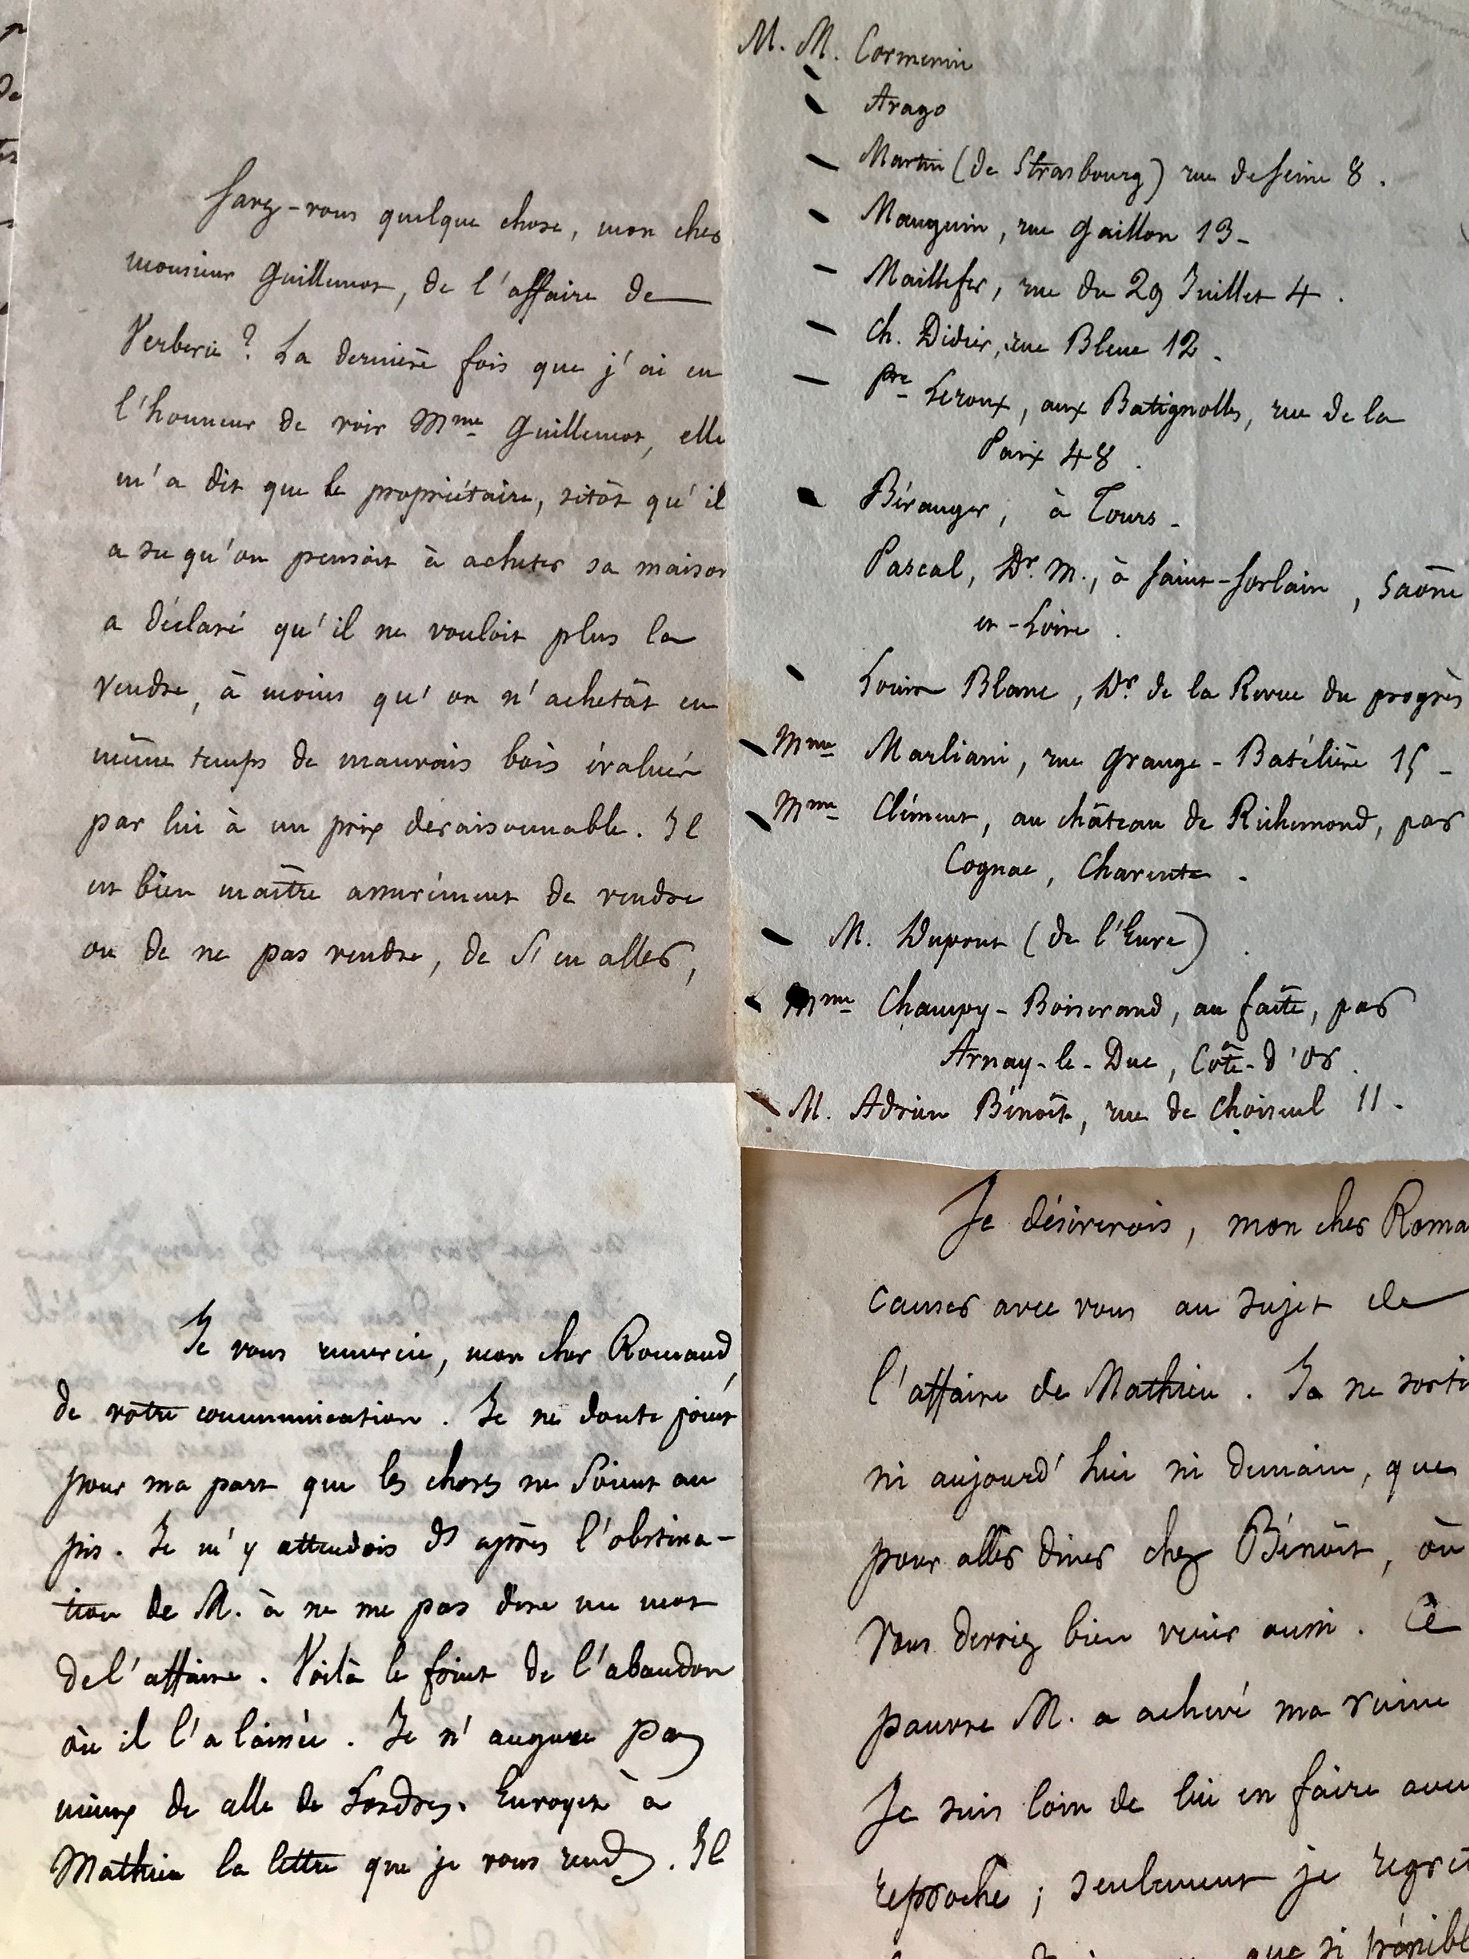 Savez-vous quelque chose, mon cher
monsieur Guillemot, de l'affaire de
Verberie? La dernière fois que j'ai eu
l'honneur de voir Mme Guillemot, elle
m'a dit que le propriétaire, sitôt qu'il
a su qu'on pensoit à acheter sa maison
a déclaré qu'il ne vouloit plus la
vendre, à moins qu'on n'achetât en
même temps de mauvais bois évalués
par lui à un prix déraisonnable. Il
est bien maître assurément de vendre
ou de ne pas vendre, de s'en aller,
M. M. Cormenin
Arago
Martin (de Strasbourg) rue de Seine 8.
Mauguin, rue Gaillon 13-
Maillefer, rue du 29 Juillet 4.
Ch. Didier, rue Bleue 12.
Pre Leroux, aux Batignolles, rue de la
Paix 48.
Béranger, à Tours-
Pascal, Dr. M., à Saint-Sorlain, Saône
et-Loire.
Louis Blanc, Dr de la Revue du progrès
Mme Marliani, rue Grange-Batélière 15-
Mme Clément, au château de Richemond, par
Cognac, Charente.
M. Dupont (de l'Eure)
Mme Champy-Boiserand, au faîte, par
Arnay-le-Duc, Côte-d'Or.
M. Adrien Bénoît, rue de Choiseul 11-
Je vous remercie, mon cher Romand,
de votre communication. Je ne doute point
pour ma part que les choses ne soient au
pis. Je m'y attendois après l'obstina-
tion de M. à ne me pas dire un mot
de l'affaire. Voilà le fruit de l'abandon
où il l'a laissée. Je n'augure pas
mieux de celle de Londres. Envoyez à
Mathieu la lettre que je vous rends. Il
Je désirerois, mon cher Roma
causer avec vous au sujet de
l'affaire de Mathieu. Je ne sorti
ni aujourd'hui ni demain, que
pour aller diner chez Bénoît, où
vous devriez bien venir aussi. Ce
pauvre M. a achevé ma ruine
Je suis loin de lui en faire aucu
reproche; seulement je regret
que si pénibl